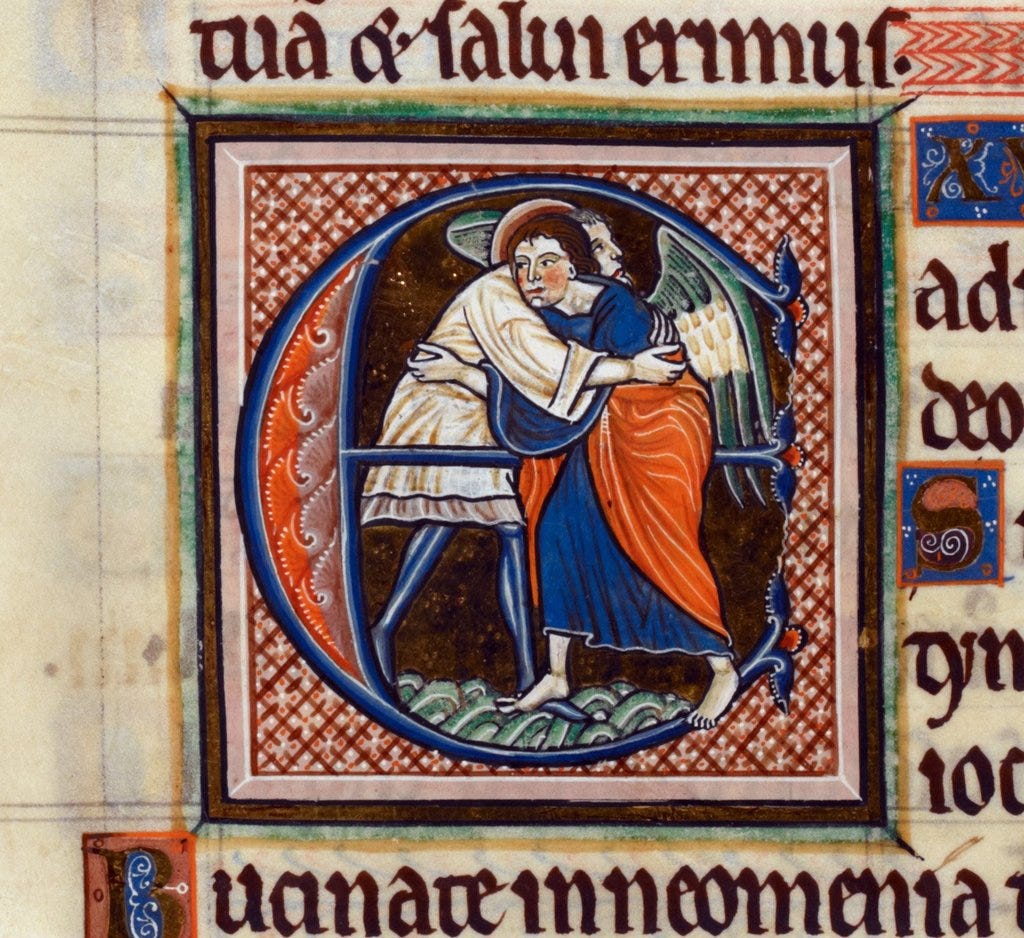 tuā & salui erimus.
E
ad
deo
S
ẏm
ioc
Bucinate in neomenia t